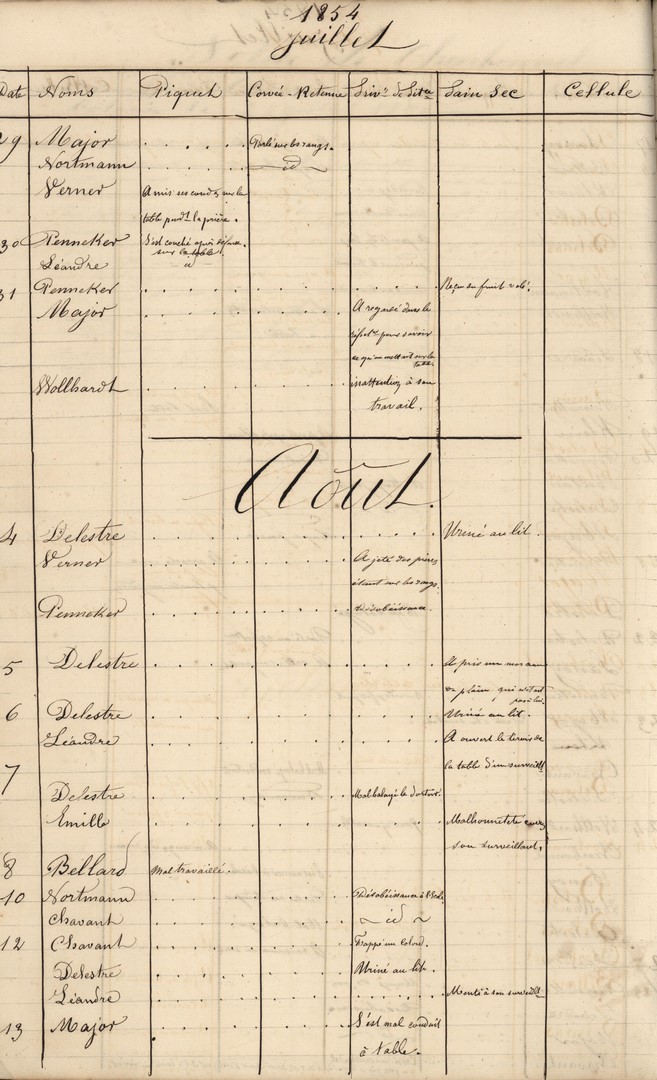 1854
Juillet
Date Noms Piquet Corvée-Retenue Priv.n de Récr.n Pain Sec Cellule
29 Major . . . . . Parlé sur les rangs.
Nortmann . . . . . id
Verner A mis ses coudes sur la
table pend.t la prière.
30 Penneker S'est couché après
sur la table
Léandre id
31 Penneker . . . . . Reçu du fruit volé.
Major . . . . . A regardé dans le
réfect.re pour savoir
ce qu'on mettait sur la
table
Wollhardt . . . . . inattention à son
travail.
Août.
4 Delestre . . . . . Uriné au lit.
Verner . . . . . A jeté des pierres
étant sur les rangs.
Penneker . . . . . désobéissance.
5 Delestre . . . . . A pris un morceau
de qui n'était
pas à lui.
6 Delestre . . . . . Uriné au lit.
Léandre . . . . . A ouvert le tiroir de
la table d'un surveill.t
7
Delestre . . . . . Mal balayé le dortoir.
Emille . . . . . Malhonnêteté envers
son surveillant.
8 Bellard Mal travaillé.
10 Nortmann . . . . . Désobéissance à
Chavant . . . . . id
12 Chavant . . . . . Frappé un colon.
Delestre . . . . . Uriné au lit.
Léandre . . . . . Menti à son surveill.t
13 Major . . . . . S'est mal conduit
à table.